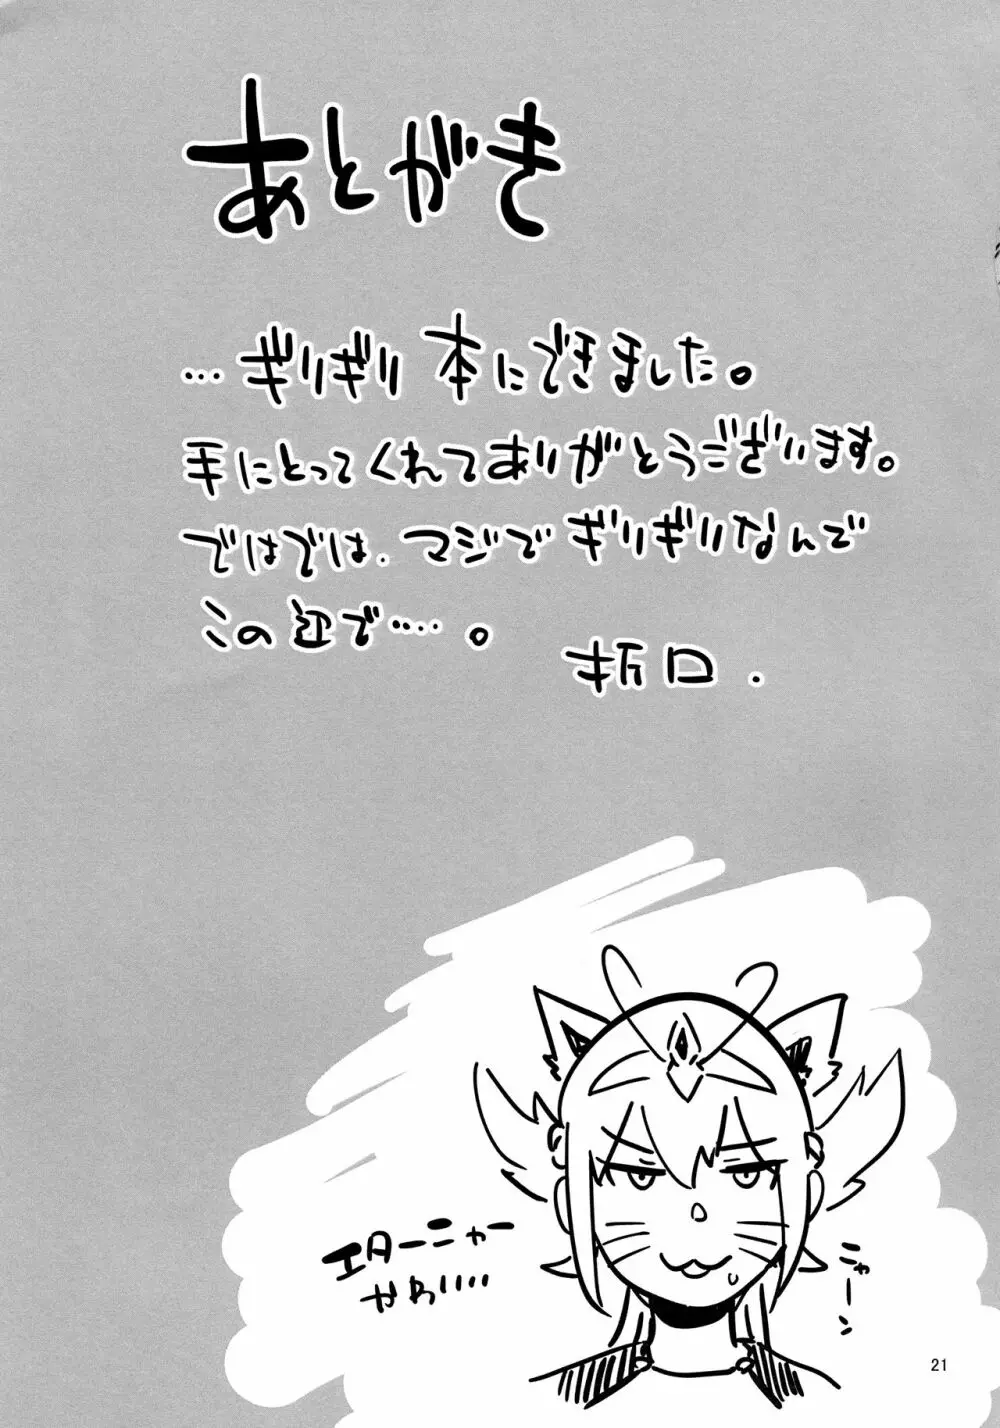 あとがき
…ギリギリ 本にできました。
手にとってくれてありがとうございます。
ではでは、マジでギリギリなんで
この辺で…‥。
折口.
エターニャー
かわいいい
ニャーン
21